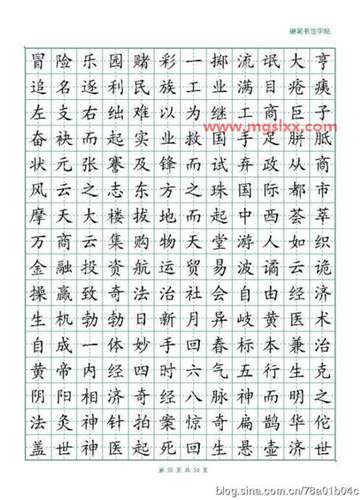 硬笔书法字帖
冒险乐园赌彩一掷流氓大亨
追名逐利民族工业满目疮痍
左支右绌难以为继工商巨子
www.mgslxx.com
奋袂而起实业救国手足胼胝
状元张謇及锋而试弃政从商
风云之志东方之珠国际都市
摩天大楼拔地而起中西荟萃
万商云集购物天堂游人如织
金融投资航运贸易波谲云诡
操赢致奇法治社会自由经济
生机勃勃日新月异岐黄医术
自成一体妙手回春标本兼治
黄帝内经四时六气五行生克
阴阳相济奇经八脉神而明之
法灸神针拍案惊奇扁鹊华佗
盖世神医起死回生悬壶济世
blog.sina.com.cn/78a01b04c